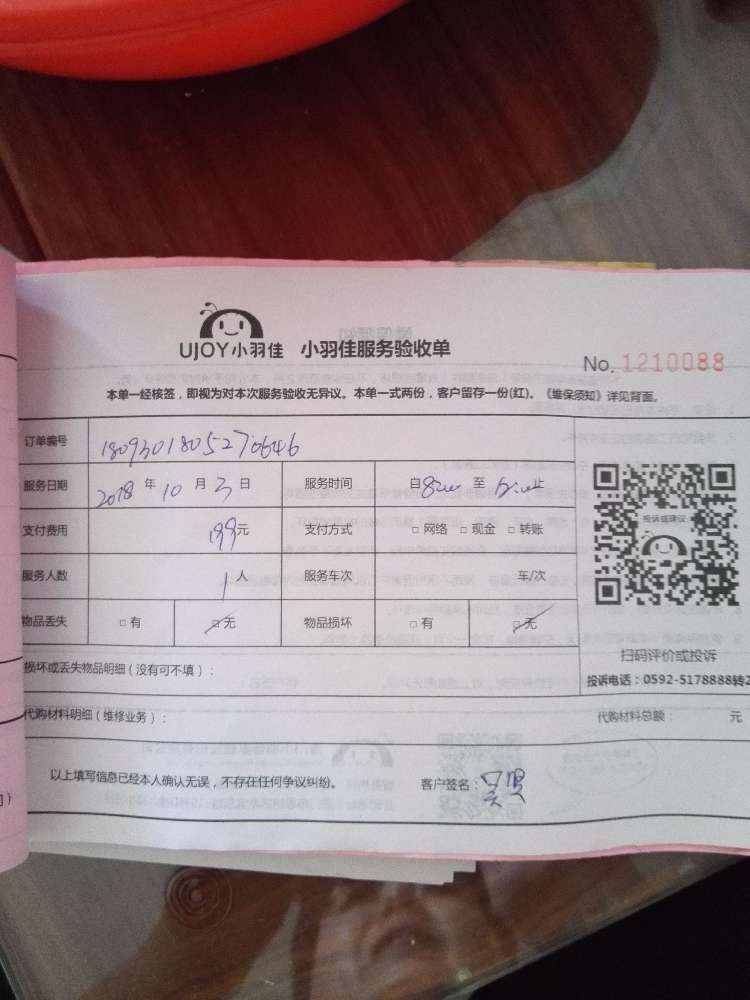 UJOY小羽佳 小羽佳服务验收单
No. 1210088
本单一经核签，即视为对本次服务验收无异议。本单一式两份，客户留存一份(红)。《维保须知》详见背面。
订单编号 1809301805270646
服务日期 2018 年 10 月 3 日 服务时间 自 8:00 至 止
支付费用 199元 支付方式 □ 网络 □ 现金 □ 转账
服务人数 1 人 服务车次 车/次
物品丢失 □ 有 □ 无 物品损坏 □ 有 □ 无
投诉或建议
扫码评价或投诉
投诉电话：0592-5178888转2
损坏或丢失物品明细（没有可不填）：
代购材料明细（维修业务）： 代购材料总额： 元
以上填写信息已经本人确认无误，不存在任何争议纠纷。 客户签名：